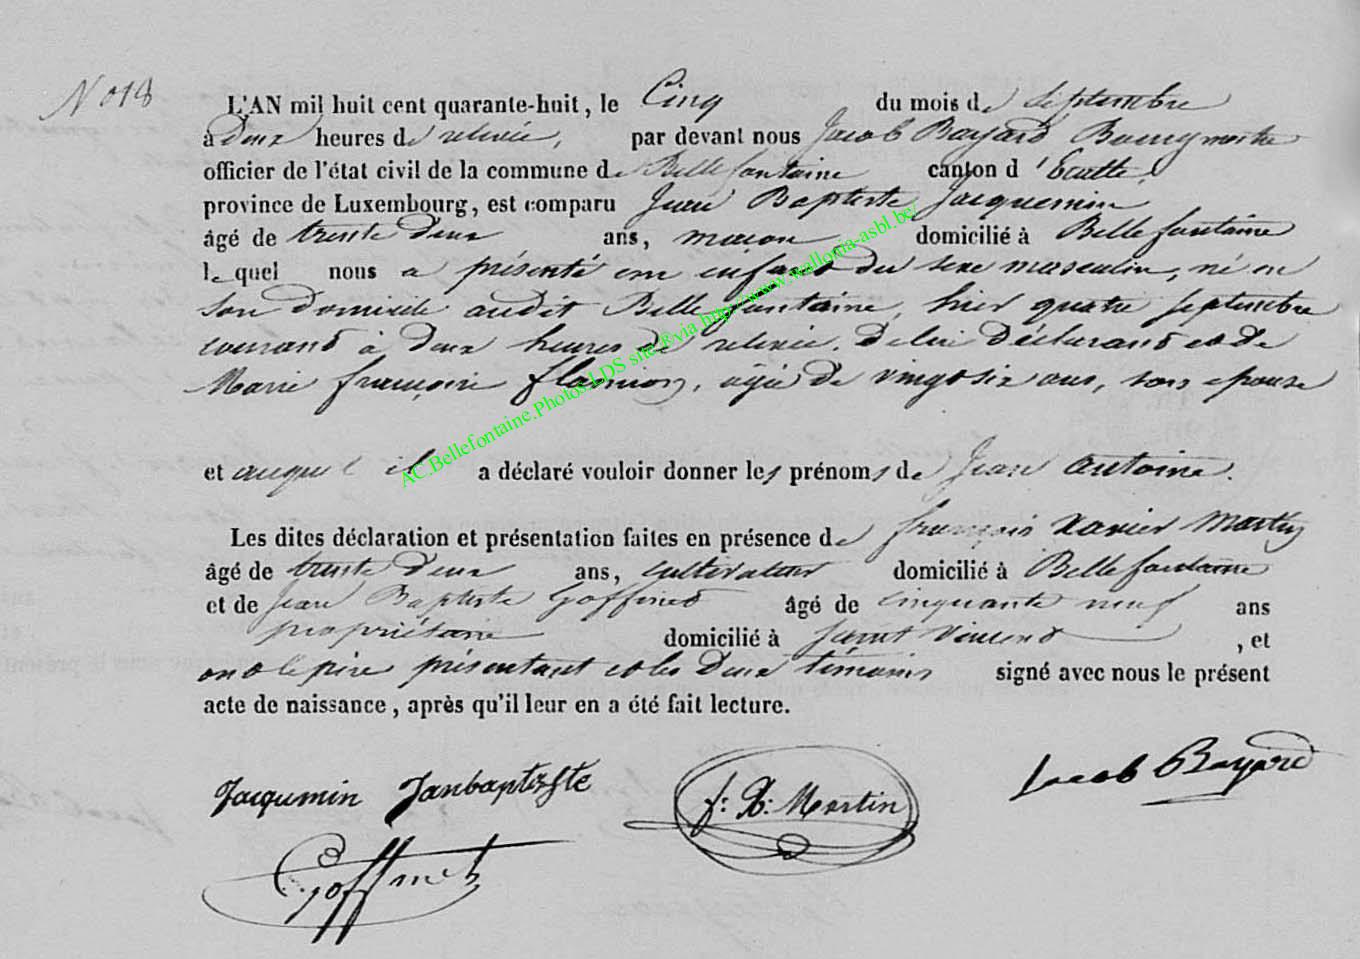 N° 18
L'AN mil huit cent quarante-huit, le Cinq du mois de Septembre
à deux heures de relevée, par devant nous Jacob Bayard Bourgmestre
officier de l'état civil de la commune de Bellefontaine canton d'Etalle,
province de Luxembourg, est comparu Jean Baptiste Jacquemin
âgé de trente deux ans, maçon domicilié à Bellefontaine
lequel nous a présenté un enfant du sexe masculin, né en
son domicile audit Bellefontaine, hier quatre septembre
courant à deux heures de relevée, de lui déclarant et de
Marie françoise flamion, agée de vingt six ans, son epouse
et auquel il a déclaré vouloir donner les prénoms de Jean Antoine.
Les dites déclaration et présentation faites en présence de françois Xavier Martin
âgé de trente deux ans, cultivateur domicilié à Bellefontaine
et de Jean Baptiste Goffinet âgé de cinquante neuf ans
propriétaire domicilié à Saint Vincent, et
ont le père présentant et les deux témoins signé avec nous le présent
acte de naissance, après qu'il leur en a été fait lecture.
Jacqumin Janbaptiste f: X: Martin Jacob Bayard
Goffinet
AC.Bellefontaine.Photos LDS site ®via http://www.wallonia-asbl.be/